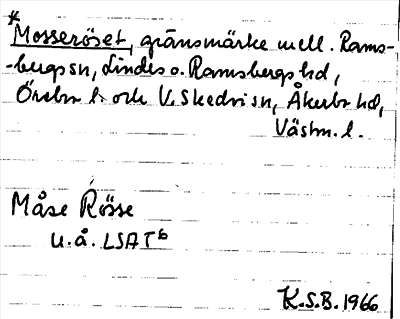 *
Mosseröset, gränsmärke mell. Rams-
-bergs sn, Lindes o. Ramsbergs hd,
Örebro l. och V. Skedvi sn, Åkerbo hd,
Västm. l.
Måse Rösse
u.å. LSA T6
K.S.B. 1966